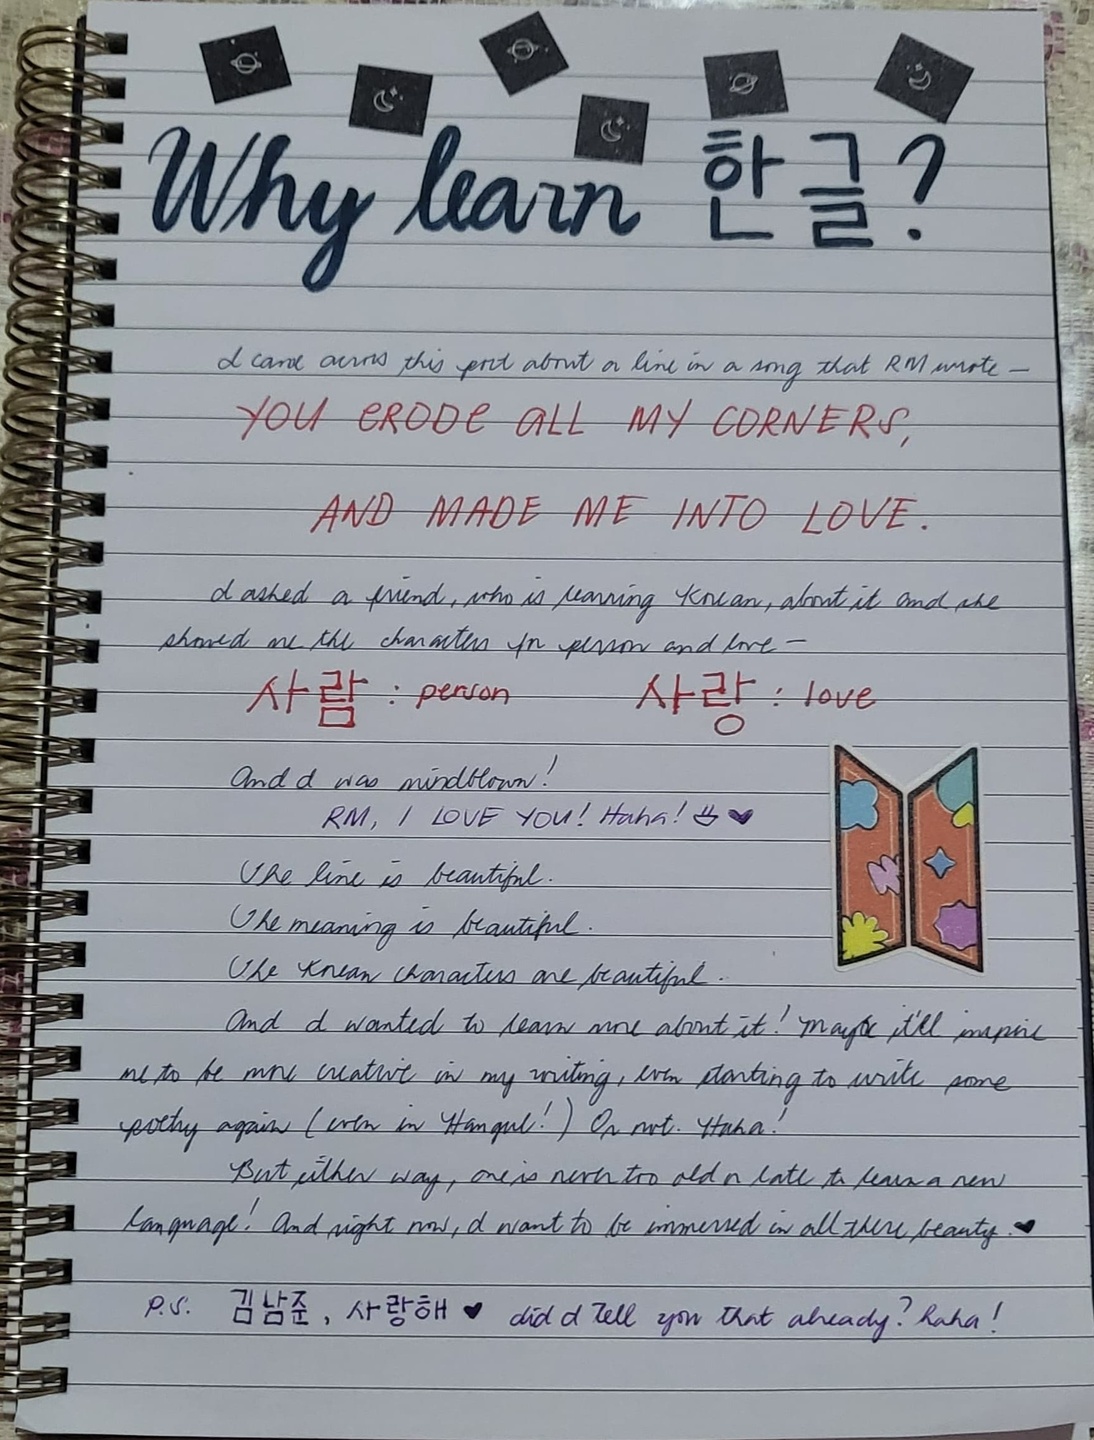 Why learn 한글?
I came across this post about a line in a song that RM wrote —
YOU ERODE ALL MY CORNERS,
AND MADE ME INTO LOVE.
I asked a friend, who is learning Korean, about it and she
showed me the characters for person and love —
사람 : person 사랑 : love
And I was mindblown!
RM, I LOVE YOU! Haha!
The line is beautiful.
The meaning is beautiful.
The Korean characters are beautiful.
And I wanted to learn more about it! Maybe it'll inspire
me to be more creative in my writing, even starting to write some
poetry again (even in Hangul!) Or not. Haha!
But either way, one is never too old or late to learn a new
language! And right now, I want to be immersed in all there beauty. ♥
P.S. 김남준, 사랑해 ♥ did I tell you that already? haha!